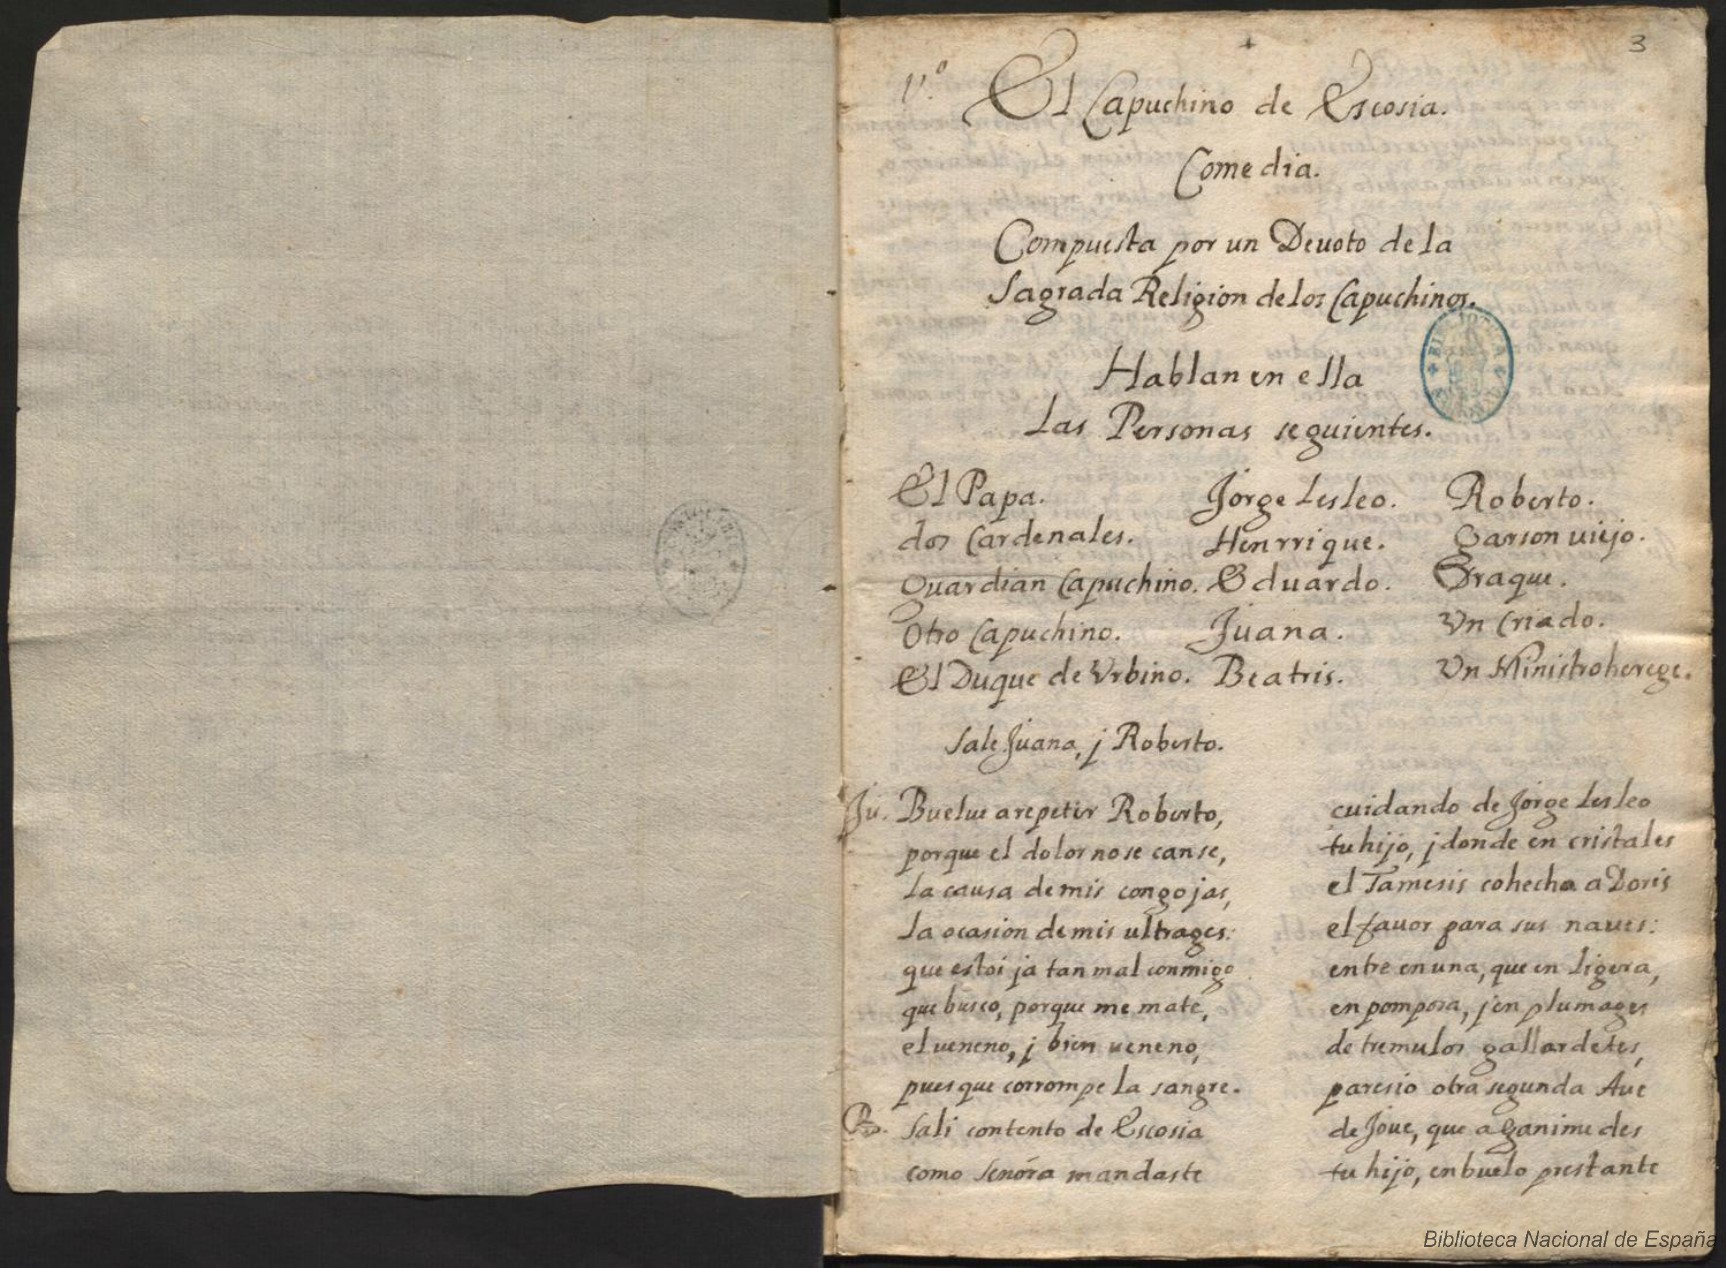 3
El Capuchino de Escosia.
Comedia.
Compuesta por un Deuoto de la
Sagrada Religion de los Capuchinos.
Hablan en ella
Las Personas seguientes.
El Papa.
dos Cardenales.
Guardian Capuchino.
Otro Capuchino.
El Duque de Vrbino.
Jorge Lesleo.
Henrrique.
Eduardo.
Juana.
Beatris.
Roberto.
Garson uiejo.
Draque.
Vn Criado.
Vn Ministro herege.
Sale Juana, j Roberto.
Ju. Buelue a repetir Roberto,
porque el dolor no se canse,
la causa de mis congojas,
la ocasion de mis ultrages:
que estoi ja tan mal conmigo
que busco, porque me mate,
el ueneno, j bien ueneno,
pues que corrompe la sangre.
Ro. Sali contento de Escosia
como Señora mandaste
cuidando de Jorge Lesleo
tu hijo, j donde en cristales
el Tamesis cohecha a Doris
el fauor para sus naues:
entre en una, que en ligera,
en pomposa, j en plumages
de tremulos gallardetes,
paresio otra segunda Aue
de Joue, que a Ganimedes
tu hijo, en buelo prestante
Biblioteca Nacional de España